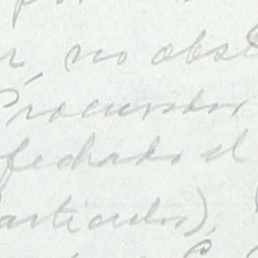 no obst
Procurador
fechado el
articulos),